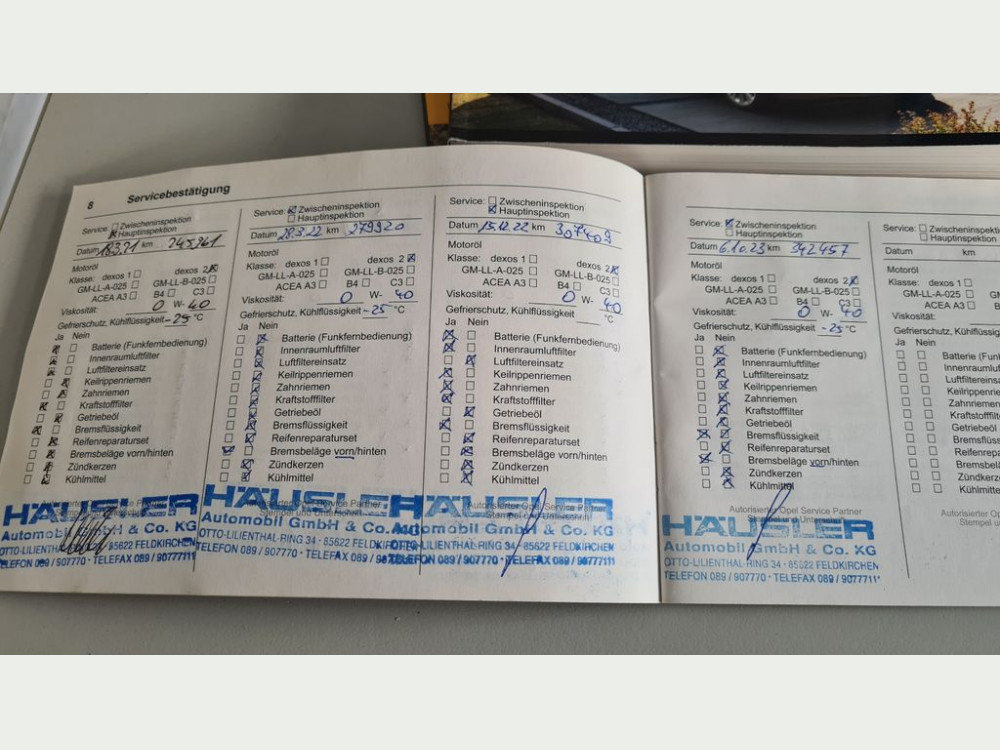 8 Servicebestätigung
Service: Zwischeninspektion
Hauptinspektion
Datum 18.3.21 km 245961
Motoröl
Klasse: dexos 1 dexos 2
GM-LL-A-025 GM-LL-B-025
ACEA A3 B4 C3
Viskosität: 0 W- 40
Gefrierschutz, Kühlflüssigkeit -25 °C
Ja Nein
Batterie (Funkfernbedienung)
Innenraumluftfilter
Luftfiltereinsatz
Keilrippenriemen
Zahnriemen
Kraftstofffilter
Getriebeöl
Bremsflüssigkeit
Reifenreparaturset
Bremsbeläge vorn/hinten
Zündkerzen
Kühlmittel
HÄUSLER
Automobil GmbH & Co. KG
OTTO-LILIENTHAL-RING 34 · 85622 FELDKIRCHEN
TELEFON 089 / 907770 · TELEFAX 089 / 90777111
Service: Zwischeninspektion
Hauptinspektion
Datum 28.3.22 km 279920
Motoröl
Klasse: dexos 1 dexos 2
GM-LL-A-025 GM-LL-B-025
ACEA A3 B4 C3
Viskosität: 0 W- 40
Gefrierschutz, Kühlflüssigkeit -25 °C
Ja Nein
Batterie (Funkfernbedienung)
Innenraumluftfilter
Luftfiltereinsatz
Keilrippenriemen
Zahnriemen
Kraftstofffilter
Getriebeöl
Bremsflüssigkeit
Reifenreparaturset
Bremsbeläge vorn/hinten
Zündkerzen
Kühlmittel
Autorisierter Opel Service Partner
Stempel und Unterschrift
HÄUSLER
Automobil GmbH & Co.
OTTO-LILIENTHAL-RING 34 · 85622 FELDKIRCHEN
TELEFON 089 / 907770 · TELEFAX 089 /
Service: Zwischeninspektion
Hauptinspektion
Datum 15.12.22 km 307409
Motoröl
Klasse: dexos 1 dexos 2
GM-LL-A-025 GM-LL-B-025
ACEA A3 B4 C3
Viskosität: 0 W- 40
Gefrierschutz, Kühlflüssigkeit °C
Ja Nein
Batterie (Funkfernbedienung)
Innenraumluftfilter
Luftfiltereinsatz
Keilrippenriemen
Zahnriemen
Kraftstofffilter
Getriebeöl
Bremsflüssigkeit
Reifenreparaturset
Bremsbeläge vorn/hinten
Zündkerzen
Kühlmittel
Autorisierter Opel Service Partner
Stempel und Unterschrift
HÄUSLER
Automobil GmbH & Co. KG
OTTO-LILIENTHAL-RING 34 · 85622 FELDKIRCHEN
TELEFON 089 / 907770 · TELEFAX 089 / 90777111
Service: Zwischeninspektion
Hauptinspektion
Datum 6.10.23 km 342457
Motoröl
Klasse: dexos 1 dexos 2
GM-LL-A-025 GM-LL-B-025
ACEA A3 B4 C3
Viskosität: 0 W- 40
Gefrierschutz, Kühlflüssigkeit -25 °C
Ja Nein
Batterie (Funkfernbedienung)
Innenraumluftfilter
Luftfiltereinsatz
Keilrippenriemen
Zahnriemen
Kraftstofffilter
Getriebeöl
Bremsflüssigkeit
Reifenreparaturset
Bremsbeläge vorn/hinten
Zündkerzen
Kühlmittel
Autorisierter Opel Service Partner
Stempel und Unterschrift
HÄUSLER
Automobil GmbH & Co. KG
OTTO-LILIENTHAL-RING 34 · 85622 FELDKIRCHEN
TELEFON 089 / 907770 · TELEFAX 089 / 90777111
Service: Zwischeninspektion
Hauptinspektion
Datum km
Motoröl
Klasse: dexos 1
GM-LL-A-025 GM-
ACEA A3
Viskosität:
Gefrierschutz, Kühlflüssigke
Ja Nein
Batterie (Funkfern
Innenraumluf
Luftfiltereins
Keilrippenrie
Zahnriemen
Kraftstofffilt
Getriebeöl
Bremsflüss
Reifenrepa
Bremsbelä
Zündkerze
Kühlmittel
Autorisierter Op
Stempel u